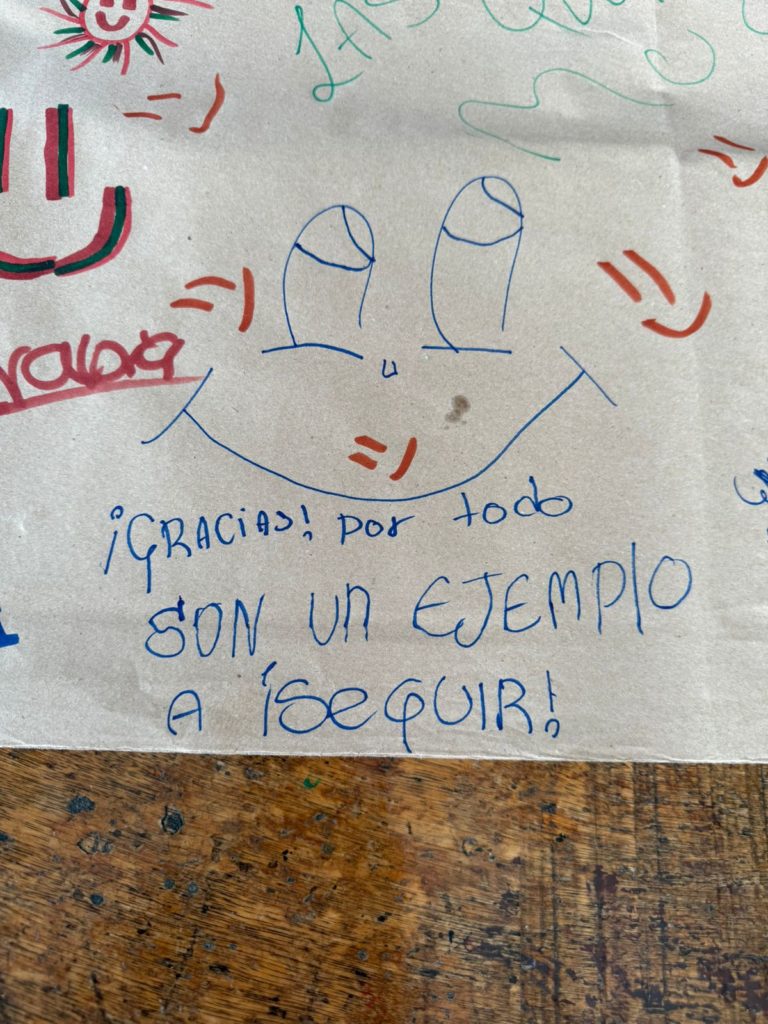 LAS
=)
=)
=)
=)
=)
¡GRACIAS! por todo
SON UN EJEMPLO
A ¡SEGUIR!